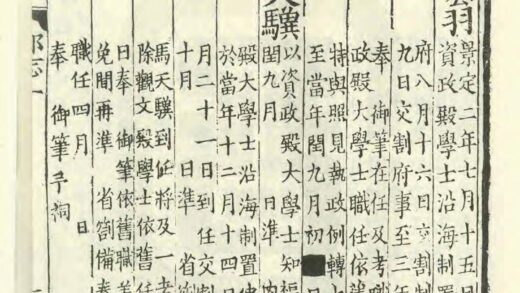 景定二年七月十五日
資政殿學士沿海制置
府八月十六日交割制
九日交割府事至三年
奉 御筆在任及考
政殿大學士職任依舊
特與照見執政例轉
至當年閏九月初
天驥
以資政殿大學士知福
閏九月 日準 内
殿大學士沿海制置使
於當年十二月十四日
月二十一日到任交割
十月 日準 省
馬天驥到任將及一考
除觀文殿學士依舊任
日奉 御筆依舊職
免聞再準 省劄備奏
職任四月 日
奉 御筆予祠
志一